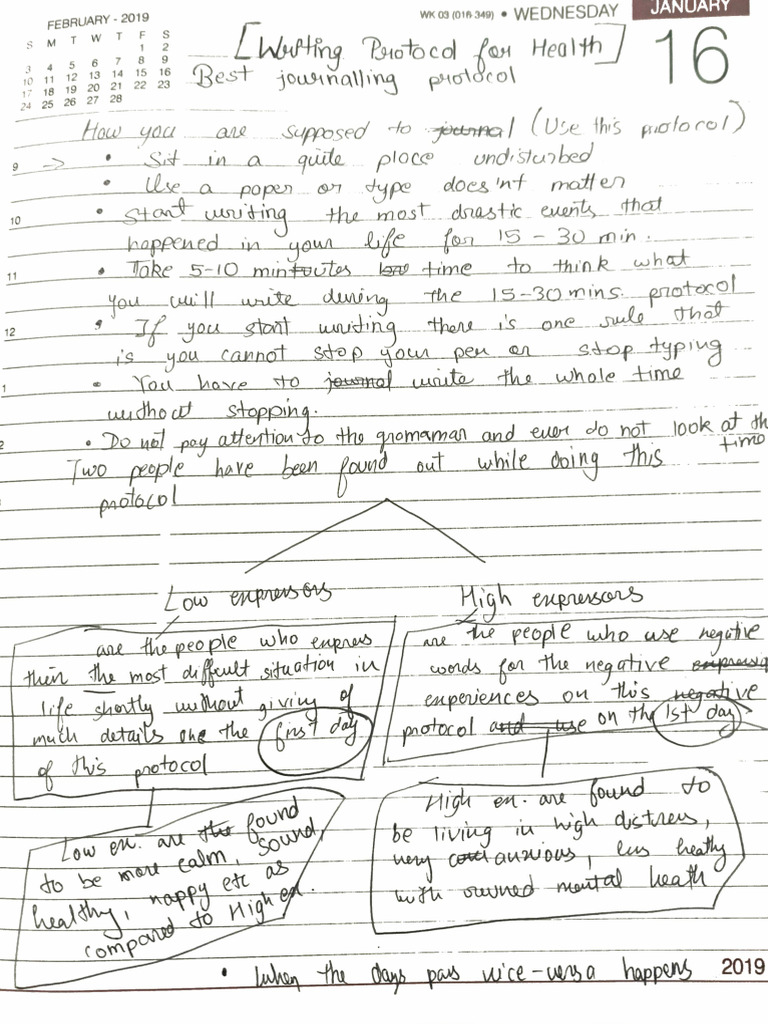 FEBRUARY - 2019
S M T W T F S
1 2
3 4 5 6 7 8 9
10 11 12 13 14 15 16
17 18 19 20 21 22 23
24 25 26 27 28
WK 03 (016-349) • WEDNESDAY
JANUARY
16
[Writing Protocol for Health]
Best journalling protocol
How you are supposed to journal (Use this protocol)
9 -> • Sit in a quite place undisturbed
• Use a paper or type does'nt matter
10 • Start writing the most drastic events that
happened in your life for 15 - 30 min.
11 • Take 5-10 mintoutes time to think what
you will write during the 15-30 mins. protocol
12 • If you start writing there is one rule that
is you cannot stop your pen or stop typing
1 • You have to journal write the whole time
without stopping.
2 • Do not pay attention to the gromamar and ever do not look at th
time
Two people have been found out while doing this
protocol
Low expressors
are the people who express
their the most difficult situation in
life shortly without giving of
much details on the first day
of this protocol
Low ex. are the found
to be more calm, sound,
healthy, happy etc as
compared to High ex.
High expressors
are the people who use negative
words for the negative expressing
experiences on this negative
protocol and use on the 1st day
High ex. are found to
be living in high distress,
very anxious, less heathy
with mental heath
• When the days pass vice-versa happens
2019